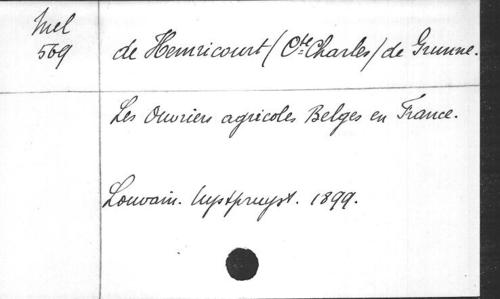 Mel
569
de Hemricourt (Cte Charles) de Grunne.
Les Ouvriers agricoles Belges en France.
Louvain. Uystpruyst. 1899.